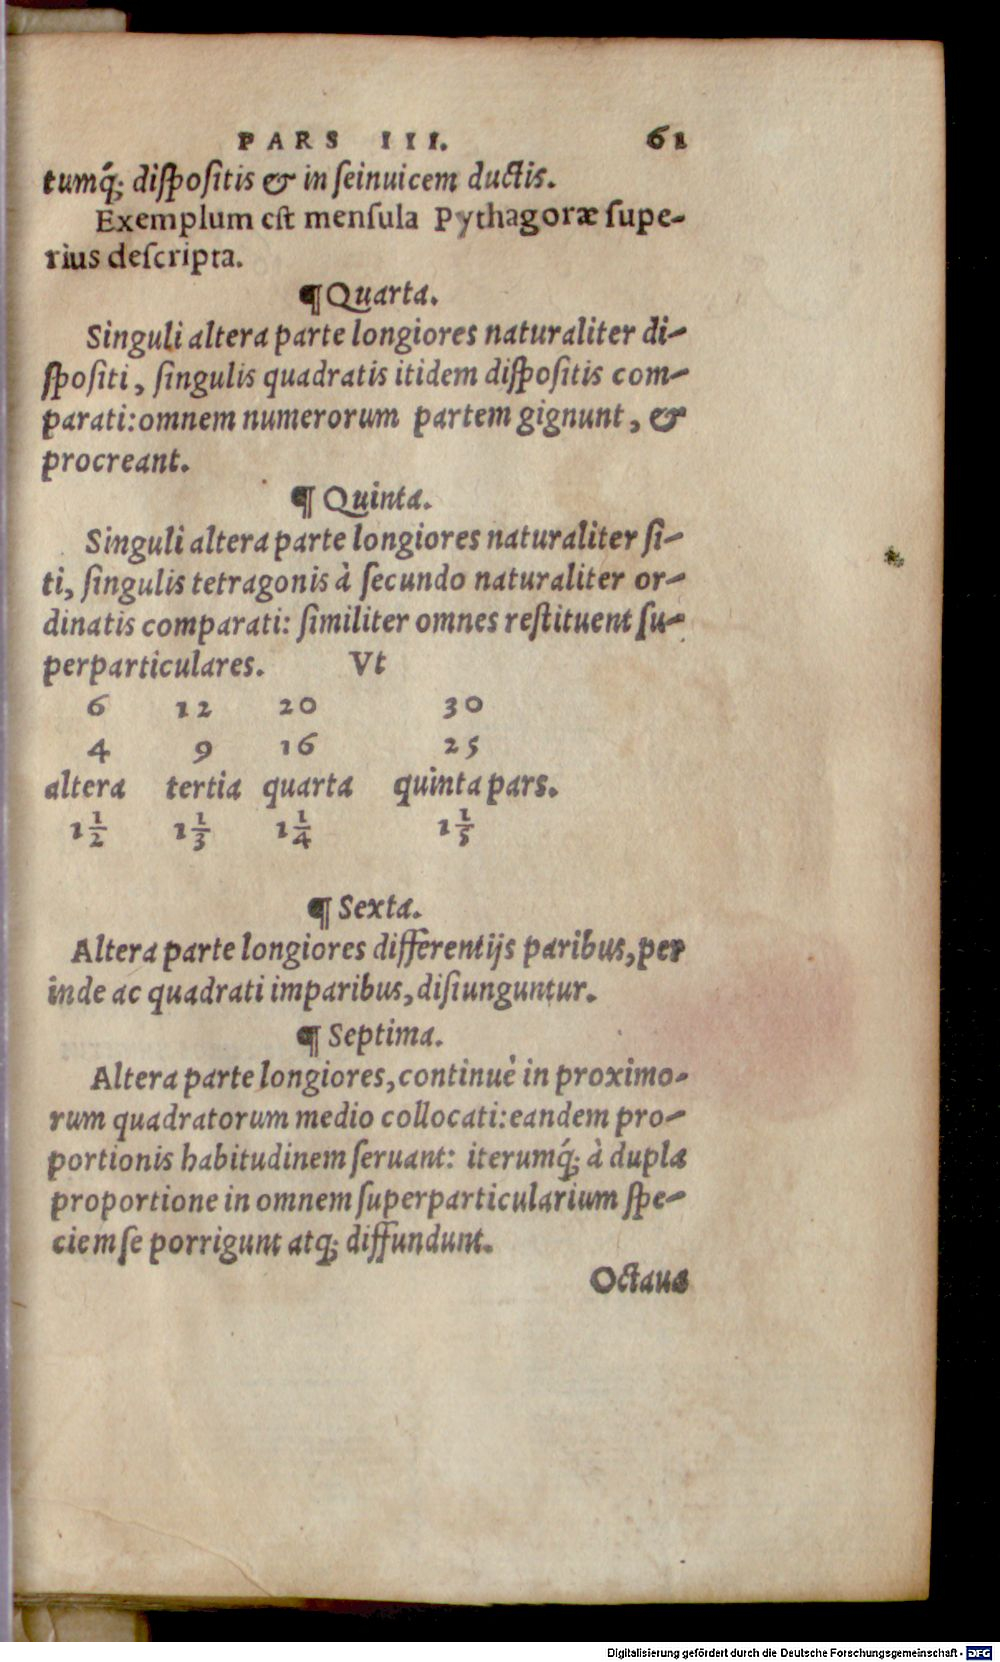 PARS III. 61
tumq́; diſpoſitis & in ſeinuicem ductis.
Exemplum eſt menſula Pythagoræ ſupe-
rius deſcripta.
¶ Quarta.
Singuli altera parte longiores naturaliter di-
ſpoſiti, ſingulis quadratis itidem diſpoſitis com-
parati: omnem numerorum partem gignunt, &
procreant.
¶ Quinta.
Singuli altera parte longiores naturaliter ſi-
ti, ſingulis tetragonis à ſecundo naturaliter or-
dinatis comparati: ſimiliter omnes reſtituent ſu-
perparticulares. Vt
6 12 20 30
4 9 16 25
altera tertia quarta quinta pars.
1 1/2 1 1/3 1 1/4 1 1/5
¶ Sexta.
Altera parte longiores differentijs paribus, per
inde ac quadrati imparibus, diſiunguntur.
¶ Septima.
Altera parte longiores, continuè in proximo-
rum quadratorum medio collocati: eandem pro-
portionis habitudinem ſeruant: iterumq́; à dupla
proportione in omnem ſuperparticularium ſpe-
ciem ſe porrigunt atq; diffundunt.
Octaua
Digitalisierung gefördert durch die Deutsche Forschungsgemeinschaft - DFG